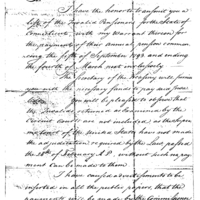 Sir
I have the honor to transmit you a
list of the Invalid Pensioners for the State of
Connecticut, with my Warrant thereon for
the payment of their Annual pension commen
cing the fifth of September 1792 and ending
the fourth of March next inclusively.
The Secretary of the treasury will furnish
you with the necessary funds to pay
You will be pleased to observe that
Invalids returned as such by the
Circuit Court are not included as the
of the United States have not made
the adjudication required by the Law passed
the 28th of February, without which
ment can be made to them.
I have caused advertisements to be
inserted in all the public papers, that the
payments will be made by the Commissioner